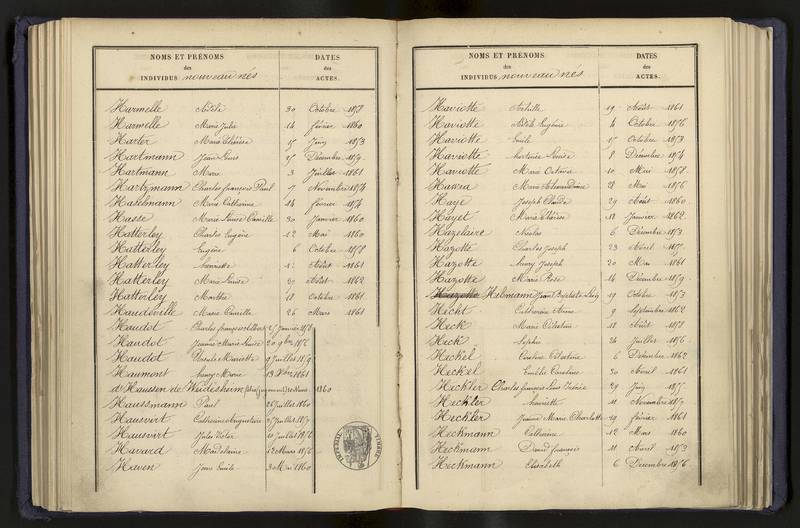 NOMS ET PRÉNOMS
des
INDIVIDUS nouveau nés
DATES
des
ACTES.
Harmelle Adèle 30 Octobre
Harmelle Marie Julie 14 février 1860
Harter Marie Thérèse 15 Juin 1853
Hartmann Jean Louis Décembre
Hartmann Marie 3 Juillet 1861
Hartzmann Charles françois Paul Novembre 1854
Marie Catherine 14 février 1854
Hasse Marie Louise Camille 30 Janvier 1860
Hatterley Charles Eugène 12 Mai 1860
Hatterley Eugène 6 Octobre 1858
Hatterley Henriette Août 1861
Hatterley Marie Louise Août 1862
Hatterley Marthe 18 Octobre 1861
Haudeville Marie Camille 26 Mars 1861
Haudot Charles françois Janvier
Haudot Jeanne Marie Louise 20 9bre 1856
Haudot Mariette 9 Juillet 1859
Haumont Marie 1861
de Haussen de Weidesheim 1860
Haussmann Paul 26 Juillet 1860
Hausvirt Catherine Juillet
Hausvirt Jules Victor Juillet 1856
Havard Madelaine 12 Mars 1856
Haven Jean Emile 3 Mai 1860
NOMS ET PRÉNOMS
des
INDIVIDUS nouveau nés
DATES
des
ACTES.
Haviotte Achille 19 Août 1861
Haviotte Adèle Eugénie 4 Octobre 1856
Haviotte Emile 15 Octobre 1853
Haviotte Hortense Louise 8 Décembre 1854
Haviotte Marie Octavie 10 Mai 1858
Marie 28 Mai 1856
Haye Joseph Claude 29 Août 1860
Hayet Marie Thérèse 18 Janvier 1862
Hazelaire Nicolas 6 Décembre 1853
Hazotte Charles Joseph 23 Avril
Hazotte Henry Joseph 20 Mai 1861
Hazotte Marie Rose 14 Décembre 1859
Hazotte Hebmann Jean Baptiste 19 Octobre 1853
Hecht Catherine Anna 9 Septembre 1862
Heck Marie Célestine 18 Août 1858
Heck Sophie 24 Juillet 1856
Heckel Célestine 6 Décembre 1862
Heckel Emélie Caroline 30 Avril 1861
Heckler Charles françois Louis 29 Juin
Heckler Henriette 11 Novembre
Heckler Jeanne Marie Charlotte 19 février 1861
Heckmann Catherine 12 Mars 1860
Heckmann David françois 11 Avril 1853
Heckmann Elisabeth 6 Décembre 1856